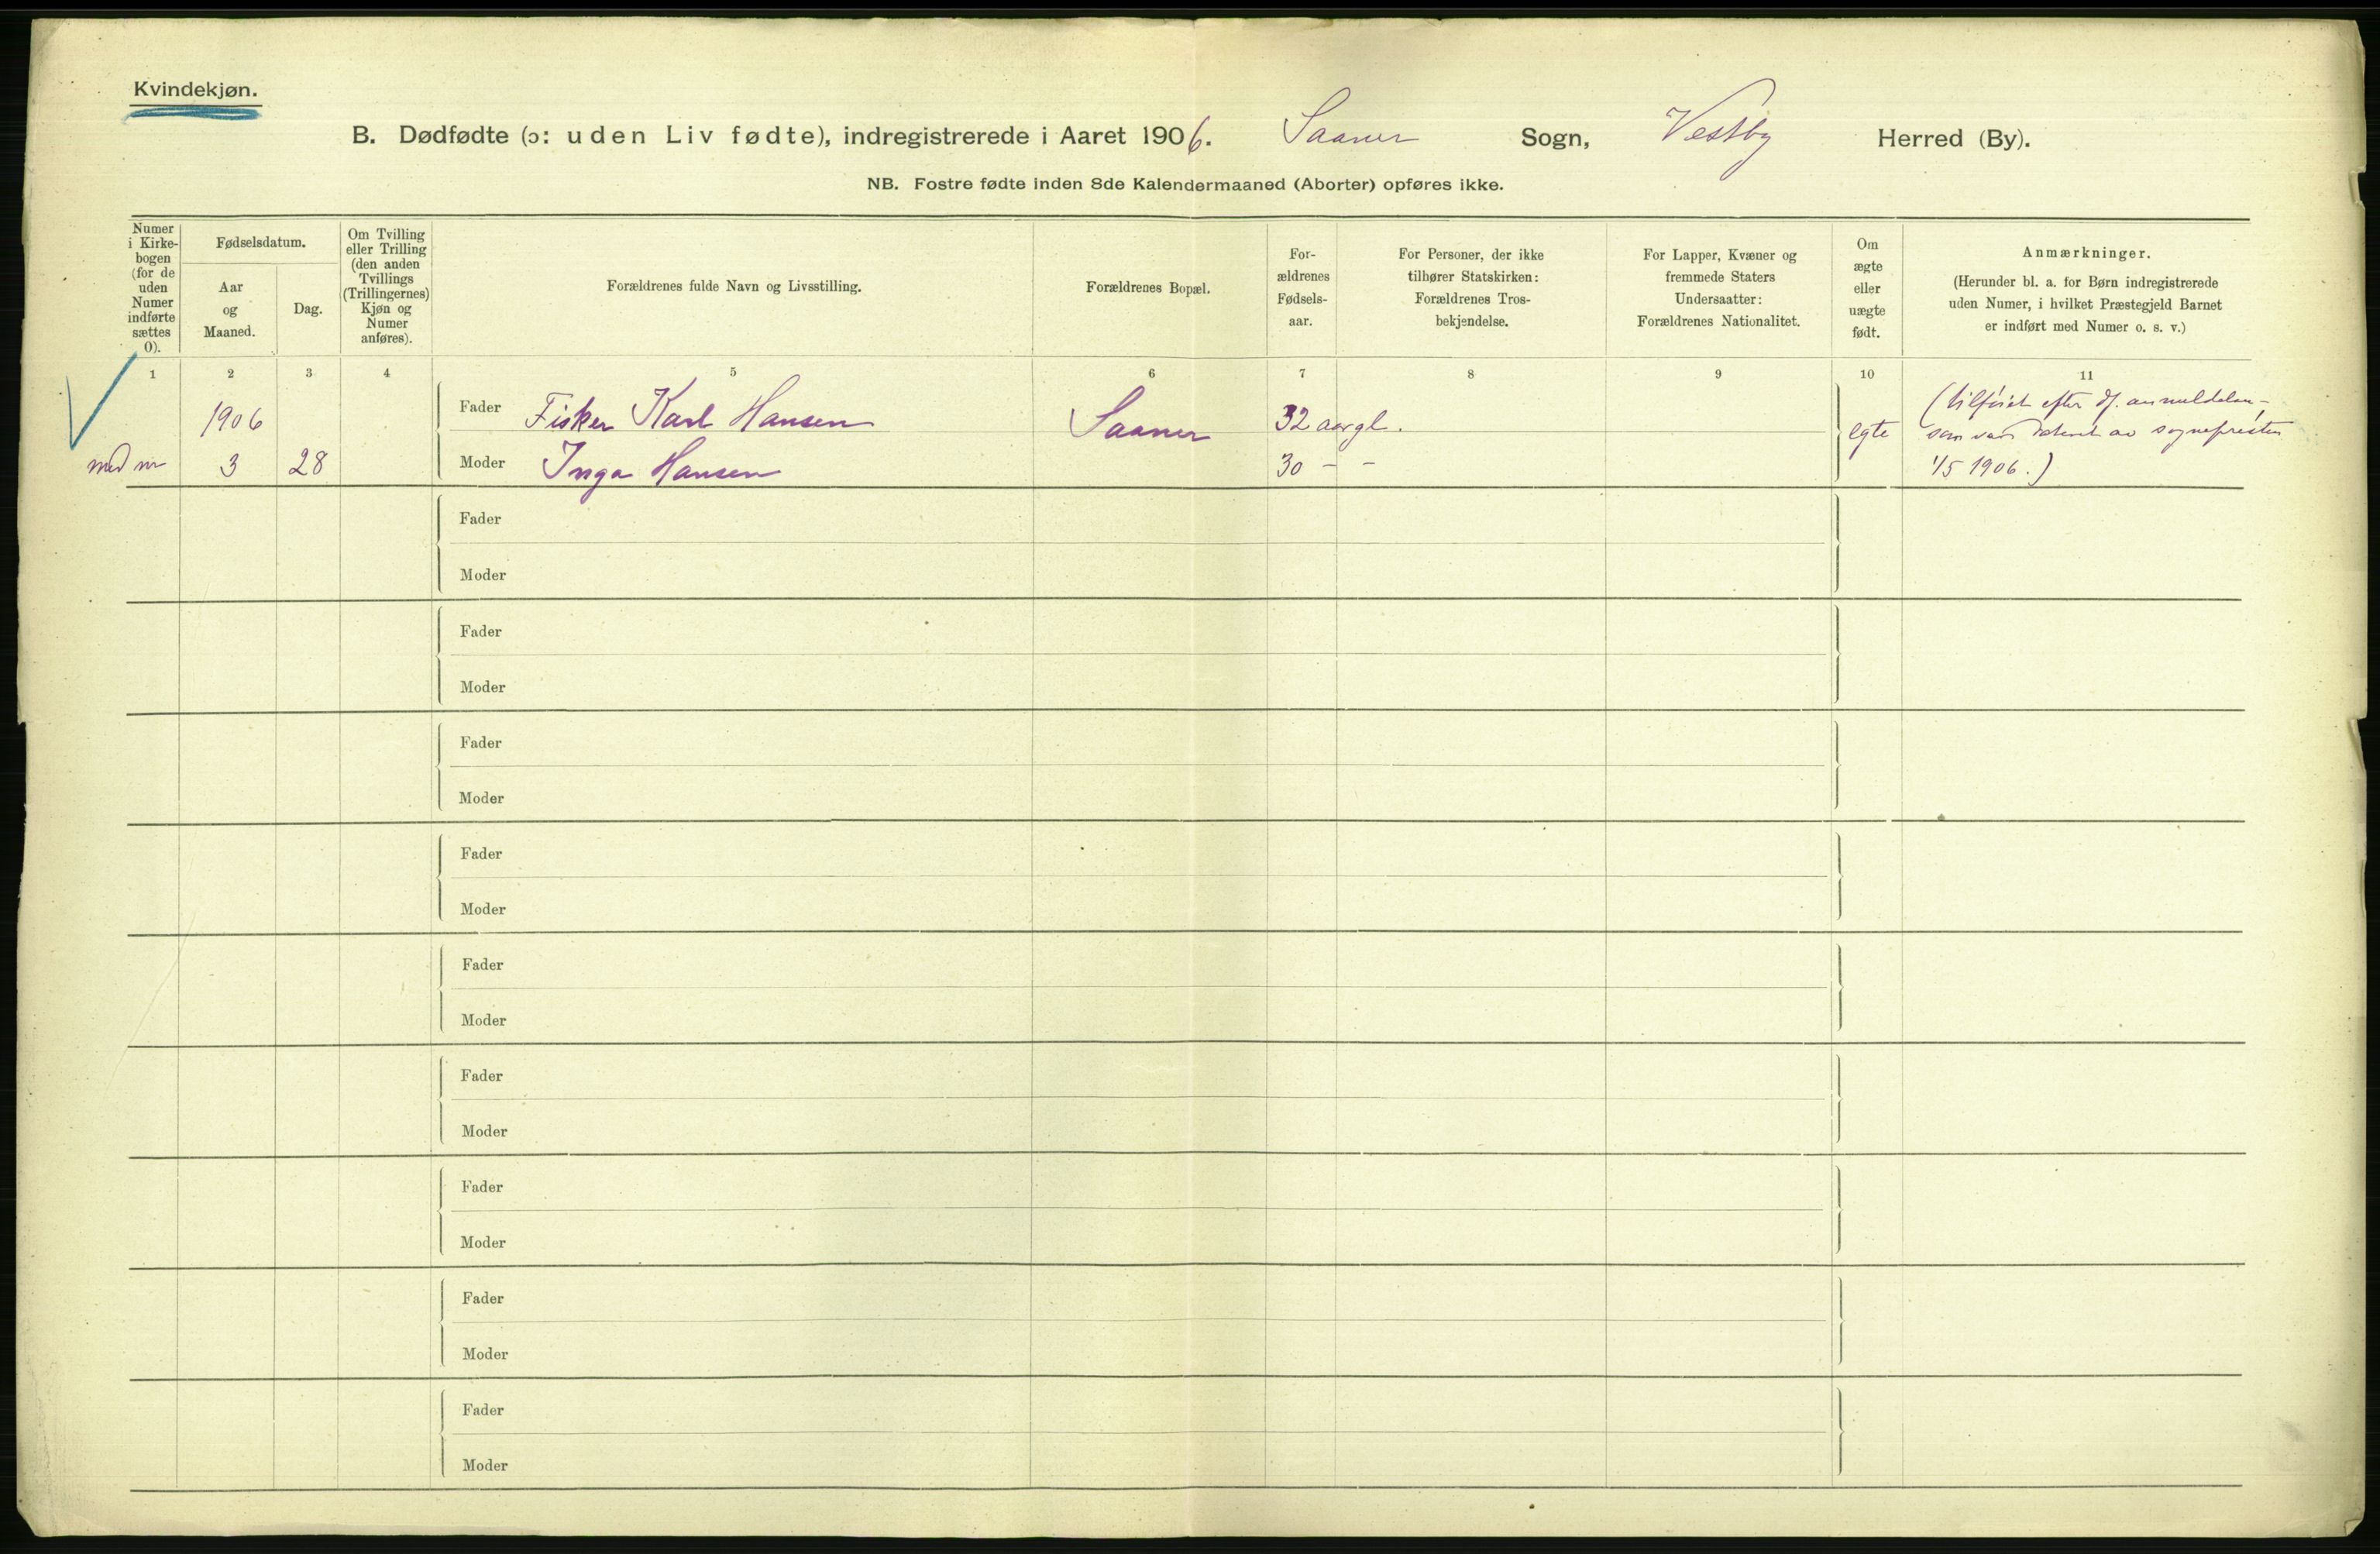 Kvindekjøn.
B. Dødfødte (ɔ: uden Liv fødte), indregistrerede i Aaret 1906. Saaner Sogn, Vestby Herred (By).
NB. Fostre fødte inden 8de Kalendermaaned (Aborter) opføres ikke.
Numer
i Kirke-
bogen
(for de
uden
Numer
indførte
sættes
0).
Fødselsdatum.
Aar
og
Maaned.
Dag.
Om Tvilling
eller Trilling
(den anden
Tvillings
(Trillingernes)
Kjøn og
Numer
anføres).
Forældrenes fulde Navn og Livsstilling.
Forældrenes Bopæl.
For-
ældrenes
Fødsels-
aar.
For Personer, der ikke
tilhører Statskirken:
Forældrenes Tros-
bekjendelse.
For Lapper, Kvæner og
fremmede Staters
Undersaatter:
Forældrenes Nationalitet.
Om
ægte
eller
uægte
født.
Anmærkninger.
(Herunder bl. a. for Børn indregistrerede
uden Numer, i hvilket Præstegjeld Barnet
er indført med Numer o. s. v.)
1 2 3 4 5 6 7 8 9 10 11
1906 Fader Fisker Karl Hansen Saaner 32 aar gl. egte (tilføiet efter df. anmeldelse,
som var av sognepresten
3 28 Moder Inga Hansen 30 - - 1/5 1906.)
Fader
Moder
Fader
Moder
Fader
Moder
Fader
Moder
Fader
Moder
Fader
Moder
Fader
Moder
Fader
Moder
Fader
Moder